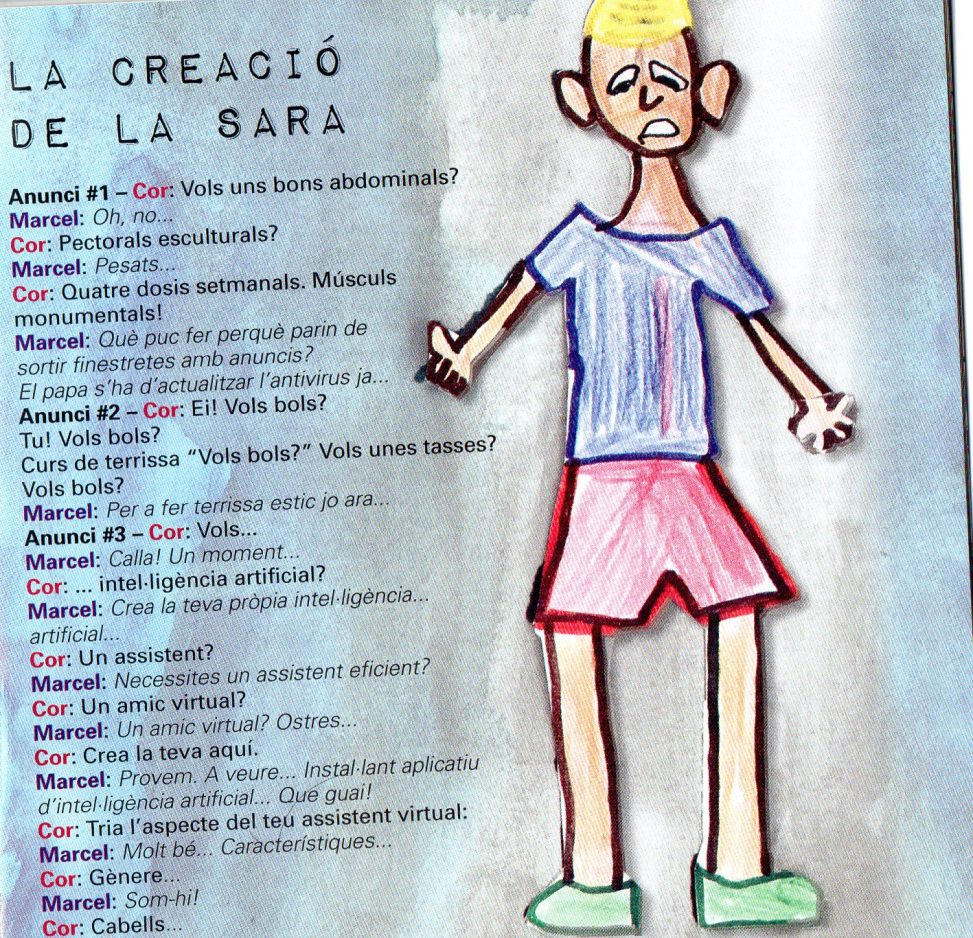 LA CREACIÓ
DE LA SARA
Anunci #1 – Cor: Vols uns bons abdominals?
Marcel: Oh, no...
Cor: Pectorals esculturals?
Marcel: Pesats...
Cor: Quatre dosis setmanals. Músculs
monumentals!
Marcel: Què puc fer perquè parin de
sortir finestretes amb anuncis?
El papa s'ha d'actualitzar l'antivirus ja...
Anunci #2 – Cor: Ei! Vols bols?
Tu! Vols bols?
Curs de terrissa “Vols bols?” Vols unes tasses?
Vols bols?
Marcel: Per a fer terrissa estic jo ara...
Anunci #3 – Cor: Vols...
Marcel: Calla! Un moment...
Cor: ... intel·ligència artificial?
Marcel: Crea la teva pròpia intel·ligència...
artificial...
Cor: Un assistent?
Marcel: Necessites un assistent eficient?
Cor: Un amic virtual?
Marcel: Un amic virtual? Ostres...
Cor: Crea la teva aquí.
Marcel: Provem. A veure... Instal·lant aplicatiu
d'intel·ligència artificial... Que guai!
Cor: Tria l'aspecte del teu assistent virtual:
Marcel: Molt bé... Característiques...
Cor: Gènere...
Marcel: Som-hi!
Cor: Cabells...